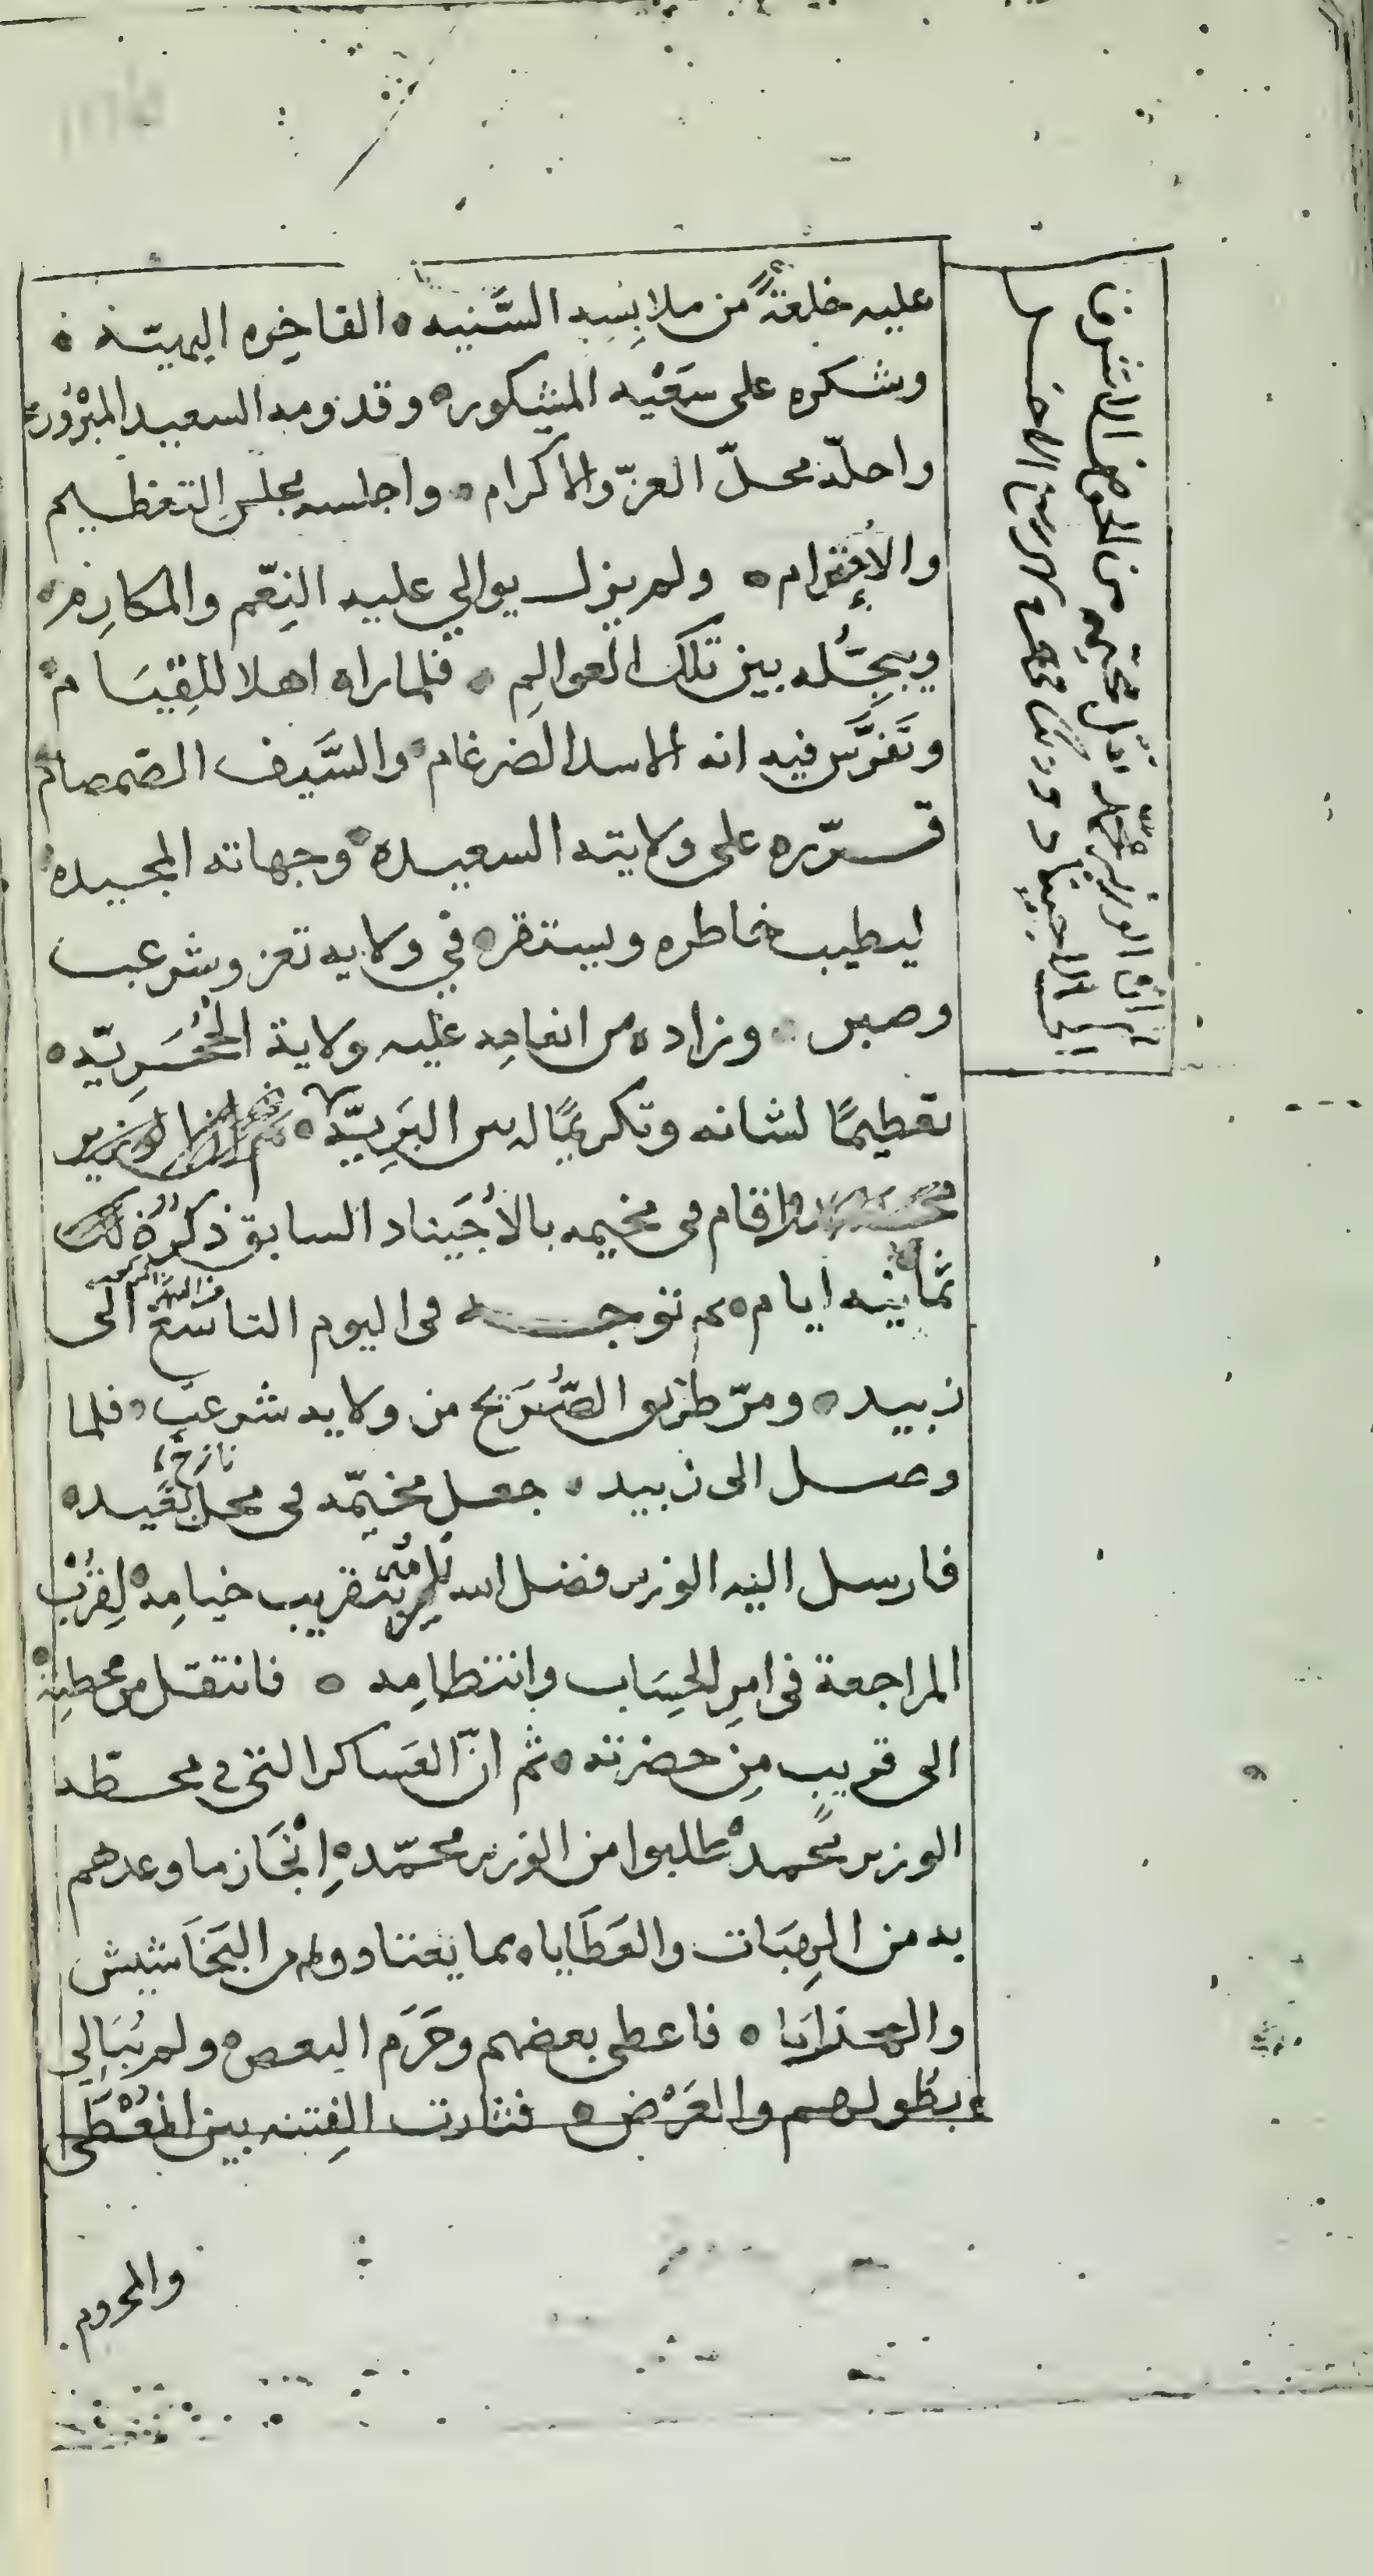 عليه خلعةً من ملابِسِه السَّنيه ٥ الفاخِره البهيّة ٥
وشكره على سَعْيِه المشكوره ٥ وقدومه السعيد المبْرُوْره
واحلّه محلّ العزّ والاكرام ٥ واجلسه مجلسِ التعظيم
والاُحترام ٥ ولم يزل يوالي عليه النِعَم والمكارِم ٥
ويبجِّله بين تلك العوالِم ٥ فلما راه اهلا للقِيَام ٥
وتَفرَّس فيه انه الاسد الضرغام ٥ والسَّيف الصمصام ٥
قرّره على ولايته السعيده ٥ وجهاته المجيده ٥
ليطيب خاطره ويستقره في ولايه تعز وشرعب
وصبر ٥ وزاده من انعامِه عليه ولاية الحُجَرِيّه ٥
تعظيمًا لشانه وتكريمًا له بين البَرِيّه ٥ ثم ان الوزير
محمد اقام في مخيمه بالاُجَيناد السابق ذكره
ثمانيه ايام ٥ ثم توجه في اليوم التاسع من الشهر الى
زبيد ٥ ومرّ طريق الصُّرَيح من ولايه شرعب ٥ فلما
وصل الى زبيد ٥ جعل مخيّمه في محل نازحٍ بعيد ٥
فارسل اليه الوزير فضل الله يلزمه بتقريب خيامِه ٥ لِقُرْبْ
المراجعة في امرِ الحِسَاب وانتظامِه ٥ فانتقل من محطتِه ٥
الى قريب مِن حضرته ٥ ثم انّ العَساكر التي في محطّه
الوزير محمد ٥ طالبوا من الوزير محمّد ٥ اِنْجَاز ما وعدهم
به من الهِبَات والعَطَايا ٥ بما يعتادوه من البَخَاشيش
والهدَايا ٥ فاعطى بعضهم وحَرَم البعض ٥ ولم يُبَالِي
بطُولهم والعَرْض ٥ فثارت الفِتنه بين المُعْطَى
والمحروم